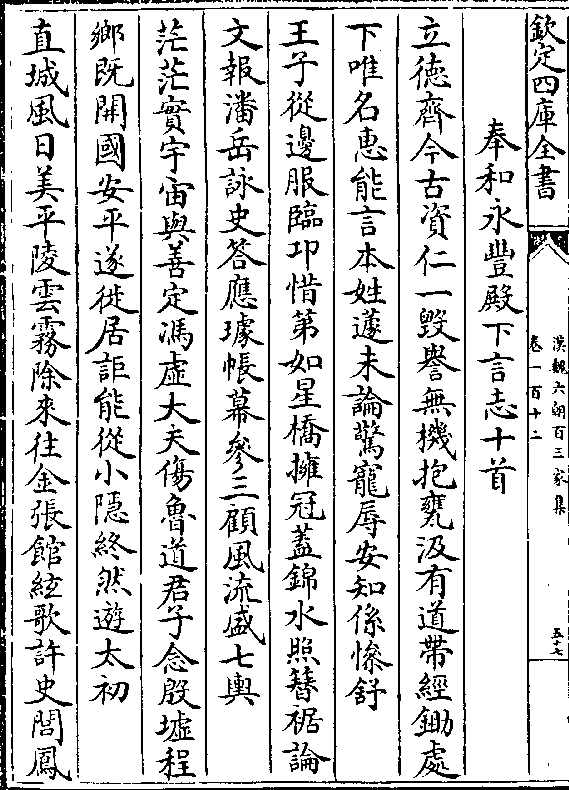 欽定四庫全書
漢魏六朝百三家集
卷一百十二
五十七
奉和永豐殿下言志十首
立德齊今古資仁一毀譽無機抱甕汲有道帶經鋤處
下唯名惠能言本姓蘧未論驚寵辱安知係慘舒
王子從邊服臨邛惜第如星橋擁冠蓋錦水照簪裾論
文報潘岳詠史答應璩帳幕參三顧風流盛七輿
茫茫實宇宙與善定馮虛大夫傷魯道君子念殷墟程
鄉既開國安平遂徙居詎能從小隱終然遊太初
直城風日美平陵雲霧除來往金張館絃歌許史閭鳳